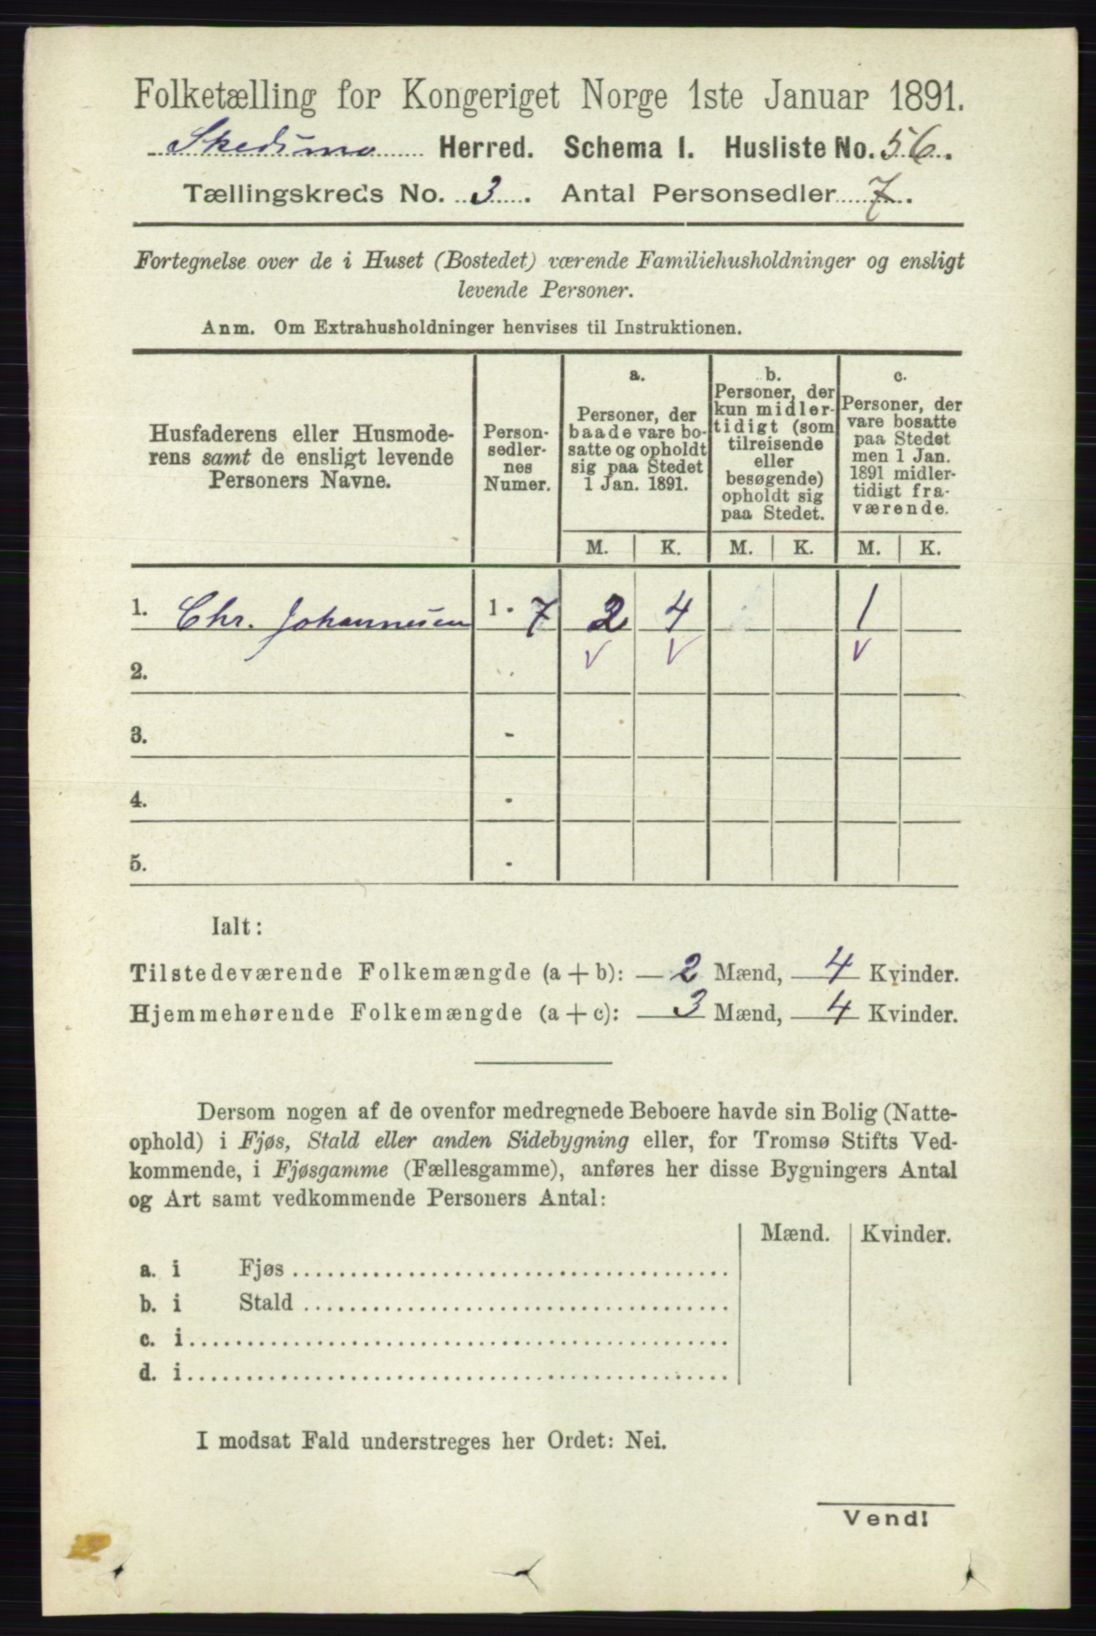 Folketælling for Kongeriget Norge 1ste Januar 1891.
Skedsmo Herred. Schema I. Husliste No. 56.
Tællingskreds No. 3. Antal Personsedler 7.
Fortegnelse over de i Huset (Bostedet) værende Familiehusholdninger og ensligt
levende Personer.
Anm. Om Extrahusholdninger henvises til Instruktionen.
Husfaderens eller Husmode-
rens samt de ensligt levende
Personers Navne.
Person-
sedler-
nes
Numer.
a.
Personer, der
baade vare bo-
satte og opholdt
sig paa Stedet
1 Jan. 1891.
b.
Personer, der
kun midler-
tidigt (som
tilreisende
eller
besøgende)
opholdt sig
paa Stedet.
c.
Personer, der
vare bosatte
paa Stedet
men 1 Jan.
1891 midler-
tidigt fra-
værende.
M. K. M. K. M. K.
1. Chr. Johannesen 1 - 7 2 4 1
2. -
3. -
4. -
5. -
Ialt:
Tilstedeværende Folkemængde (a + b): 2 Mænd, 4 Kvinder.
Hjemmehørende Folkemængde (a + c): 3 Mænd, 4 Kvinder.
Dersom nogen af de ovenfor medregnede Beboere havde sin Bolig (Natte-
ophold) i Fjøs, Stald eller anden Sidebygning eller, for Tromsø Stifts Ved-
kommende, i Fjøsgamme (Fællesgamme), anføres her disse Bygningers Antal
og Art samt vedkommende Personers Antal:
Mænd. Kvinder.
a. i Fjøs
b. i Stald
c. i
d. i
I modsat Fald understreges her Ordet: Nei.
Vend!